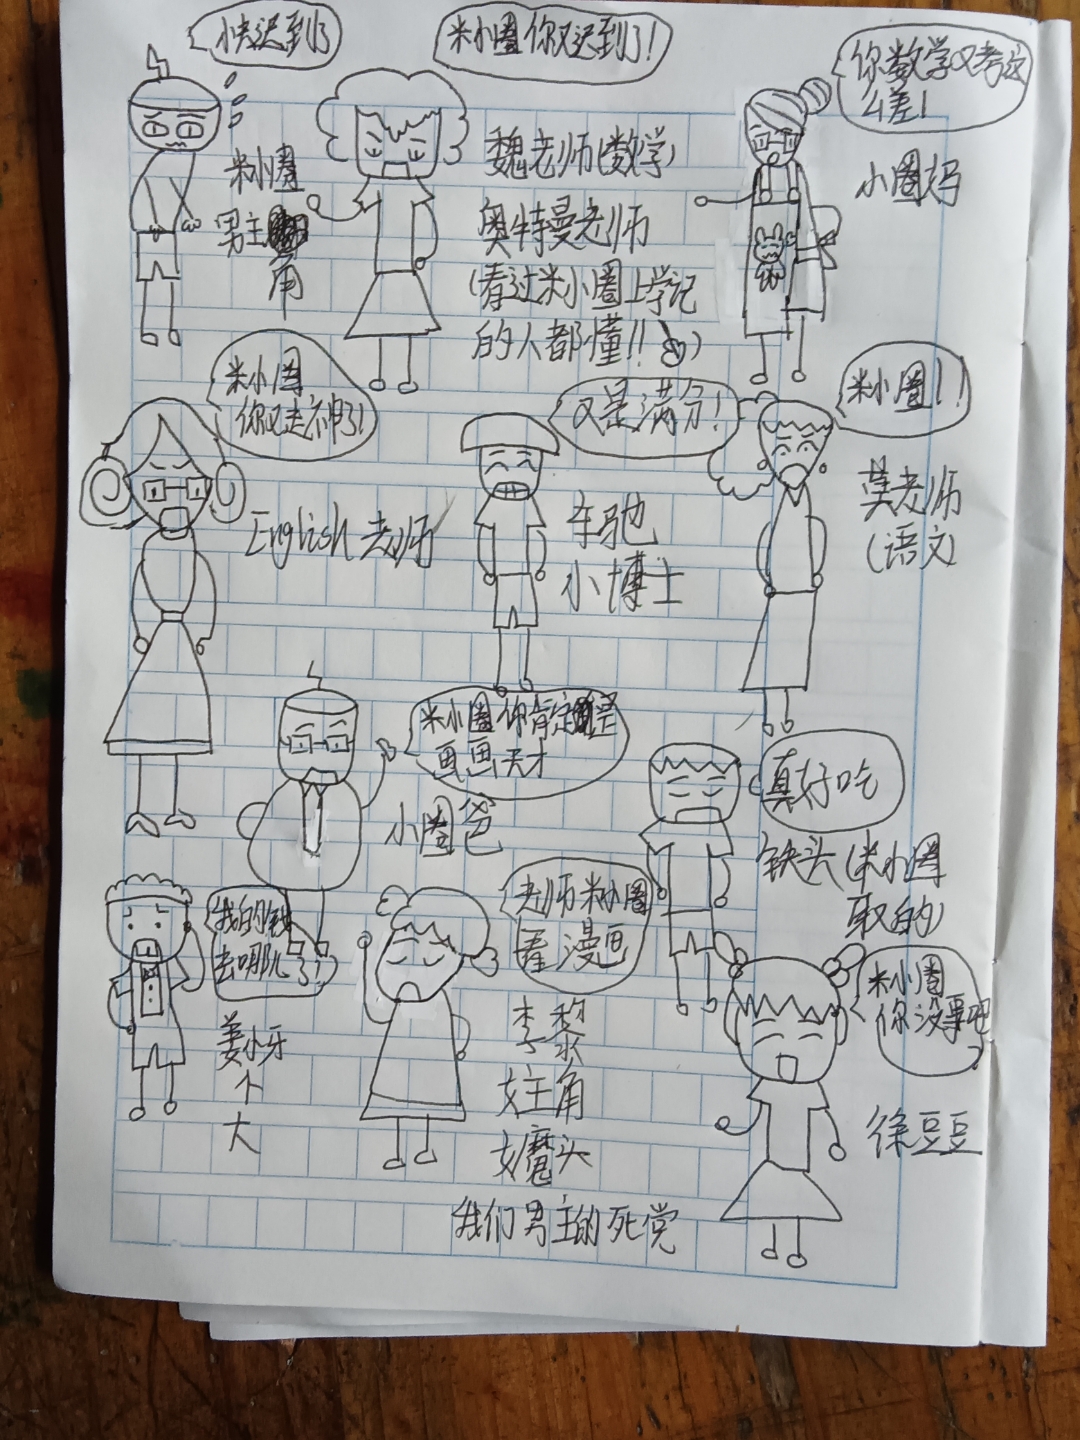 快迟到了
米小圈你又迟到了!
你数学又考这
么差!
米小圈
男主
角
魏老师(数学)
奥特曼老师
(看过米小圈上学记
的人都懂!!)
小圈妈
米小圈
你又走神了!
English老师
又是满分!
车驰
小博士
米小圈!!
莫老师
(语文)
米小圈你肯定是
画画天才
小圈爸
真好吃
铁头(米小圈
取的)
我的钱
去哪儿了!
姜小牙
个
大
老师米小圈
看漫画
李黎
女主角
女魔头
我们男主的死党
米小圈
你没事吧
徐豆豆